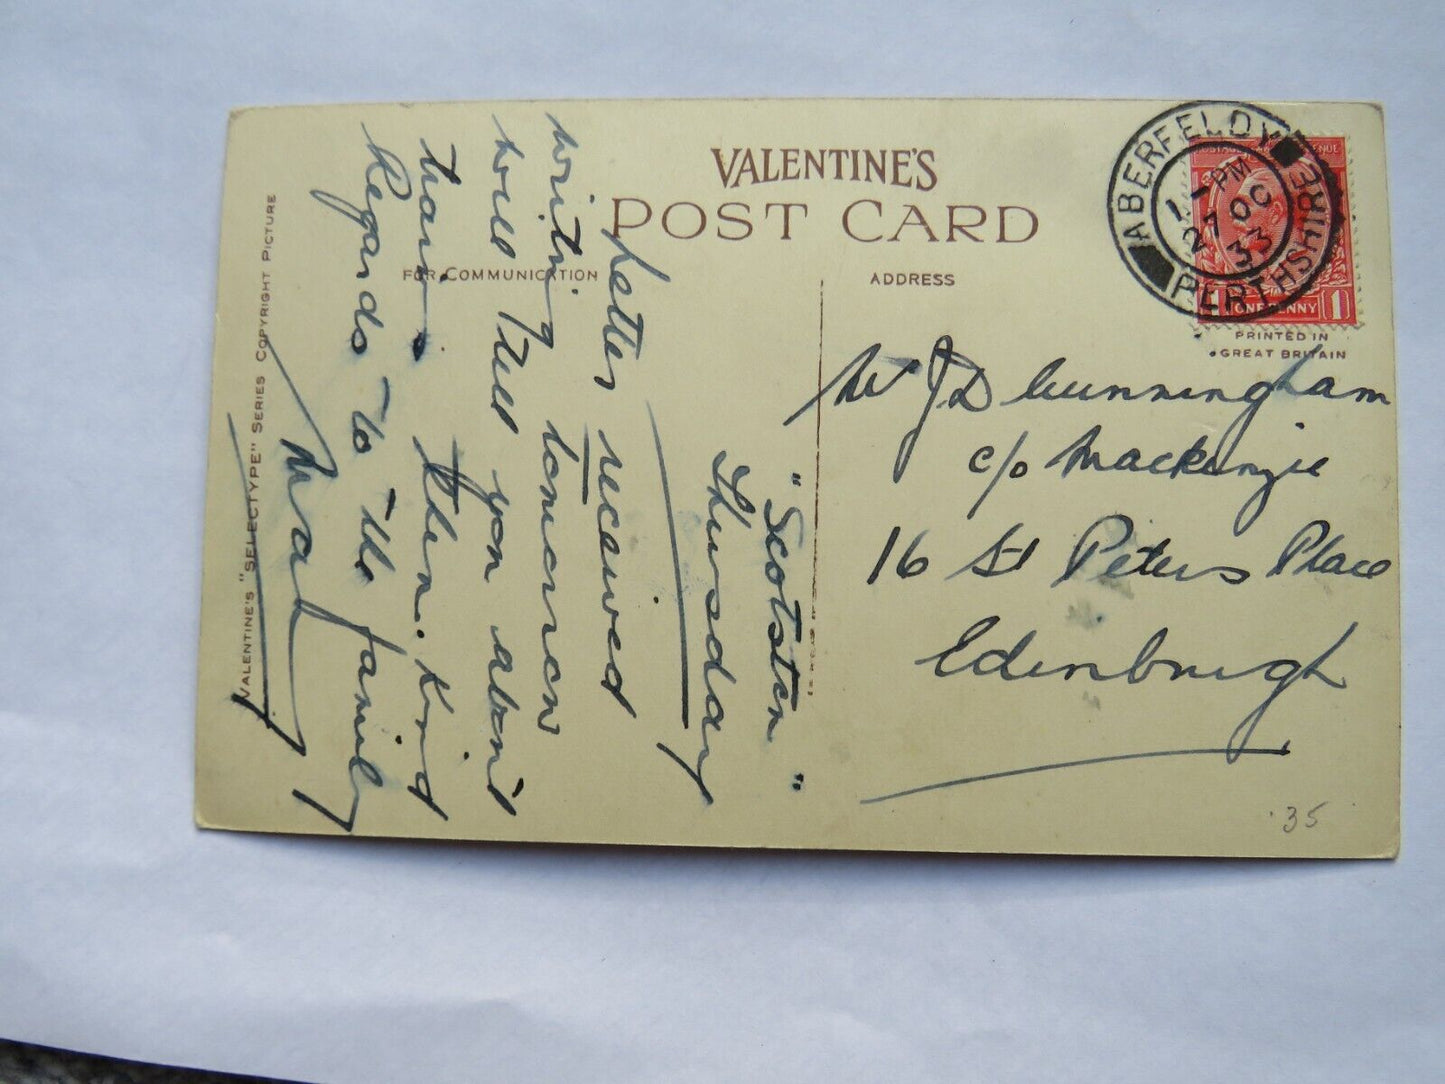 VALENTINE'S
POST CARD
FOR COMMUNICATION
ADDRESS
PRINTED IN
GREAT BRITAIN
ABERFELDY
PERTHSHIRE
1 - PM
27 OC
33
POSTAGE REVENUE
1 ONE PENNY 1
VALENTINE'S "SELECTYPE" SERIES COPYRIGHT PICTURE
"Scotsten"
Thursday
Letter received
writing tomorrow
will tell you about
trains then. Kind
Regards to the family
Mr J D Cunningham
c/o Mackenzie
16 St Peters Place
Edinburgh
35